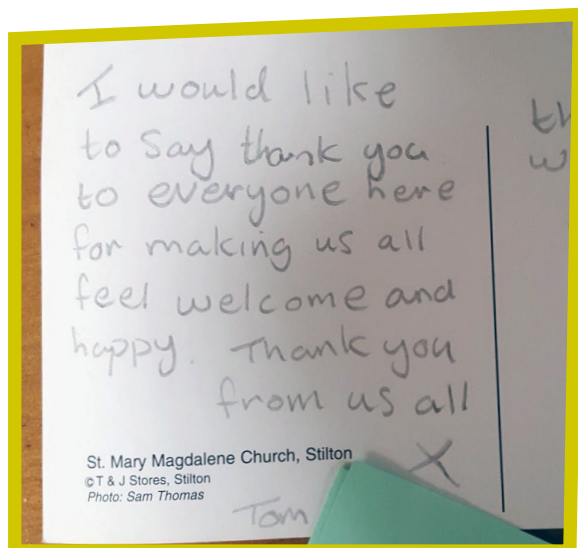 I would like
to say thank you
to everyone here
for making us all
feel welcome and
happy. Thank you
from us all
X
St. Mary Magdalene Church, Stilton
©T & J Stores, Stilton
Photo: Sam Thomas
Tom